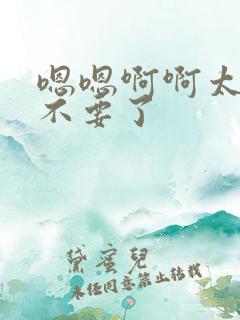 嗯嗯啊啊太
不要了
黛蜜兒
未经同意禁止转载